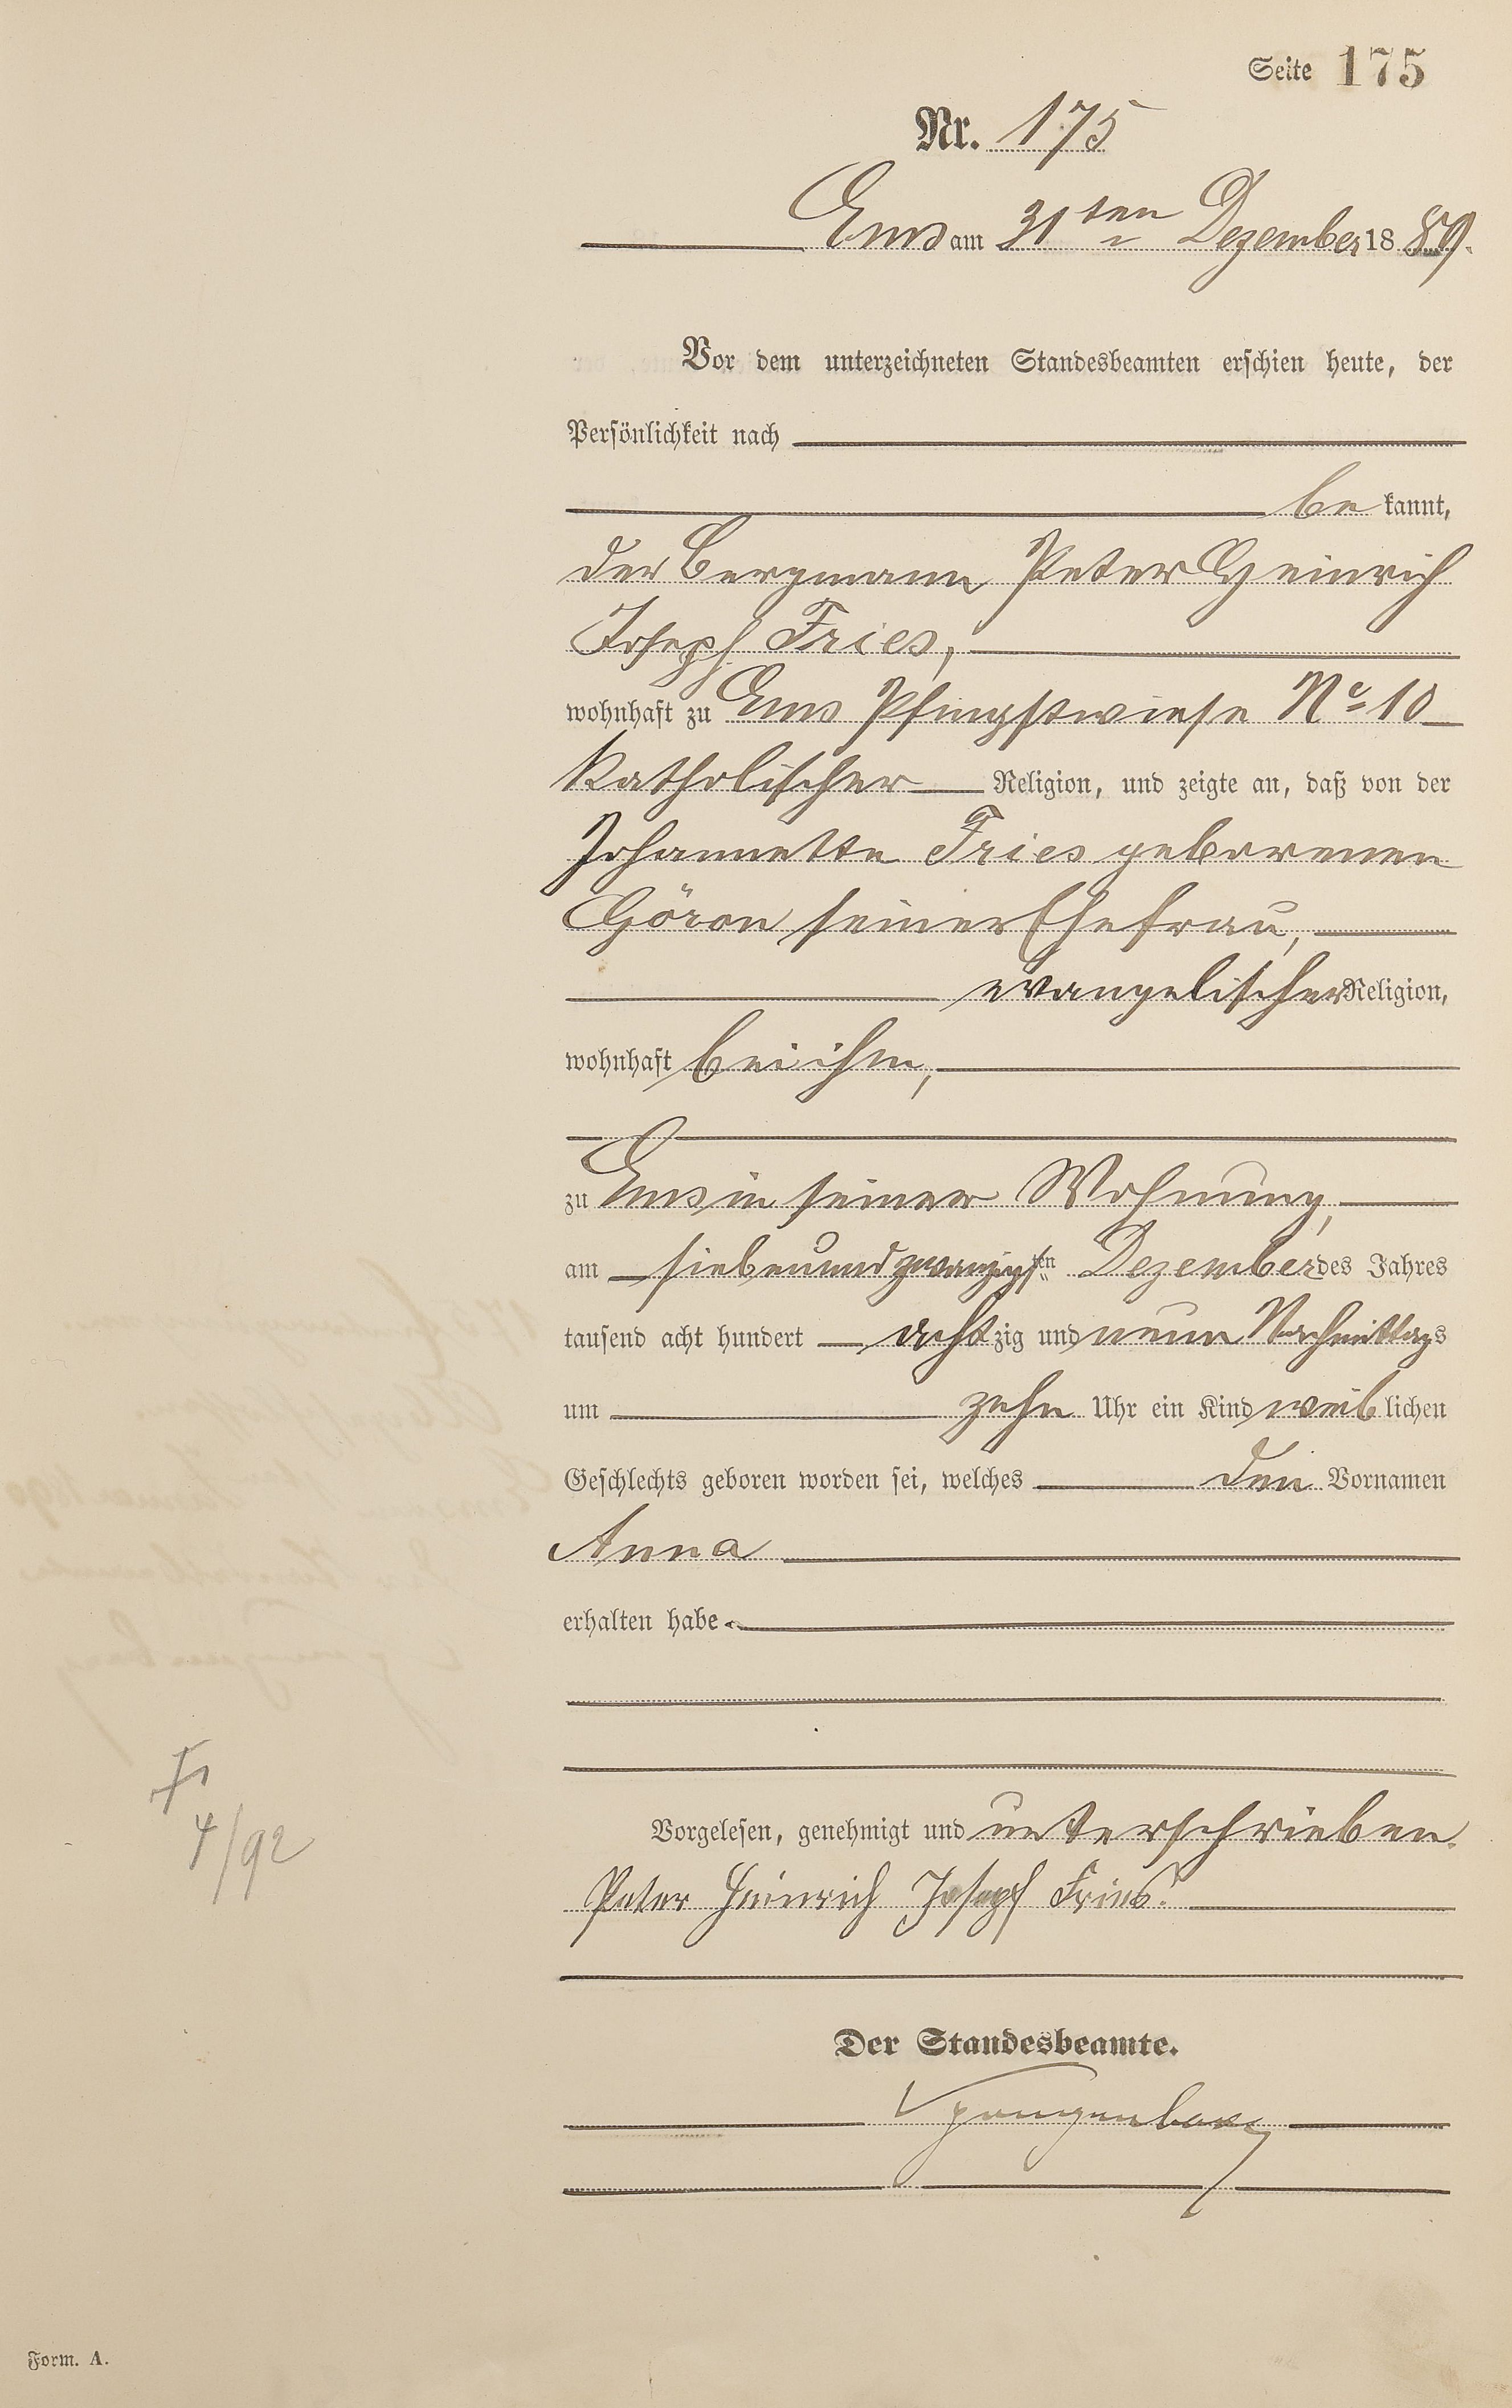 Seite 175
Nr. 175
Ems am 31ten Dezember 1889.
Vor dem unterzeichneten Standesbeamten erschien heute, der
Persönlichkeit nach
bekannt,
der Bergmann Peter Heinrich
Joseph Fries,
wohnhaft zu Ems Pfingstwiese No 10
katholischer Religion, und zeigte an, daß von der
Johannette Fries geborenen
Göron seiner Ehefrau,
evangelischer Religion,
wohnhaft bei ihm,
zu Ems in seiner Wohnung,
am siebenundzwanzigsten Dezember des Jahres
tausend acht hundert achtzig und neun Nachmittags
um zehn Uhr ein Kind weiblichen
Geschlechts geboren worden sei, welches den Vornamen
Anna
erhalten habe
Vorgelesen, genehmigt und unterschrieben.
Peter Heinrich Joseph Fries.
4/92
Der Standesbeamte.
Spangenberg
Form. A.